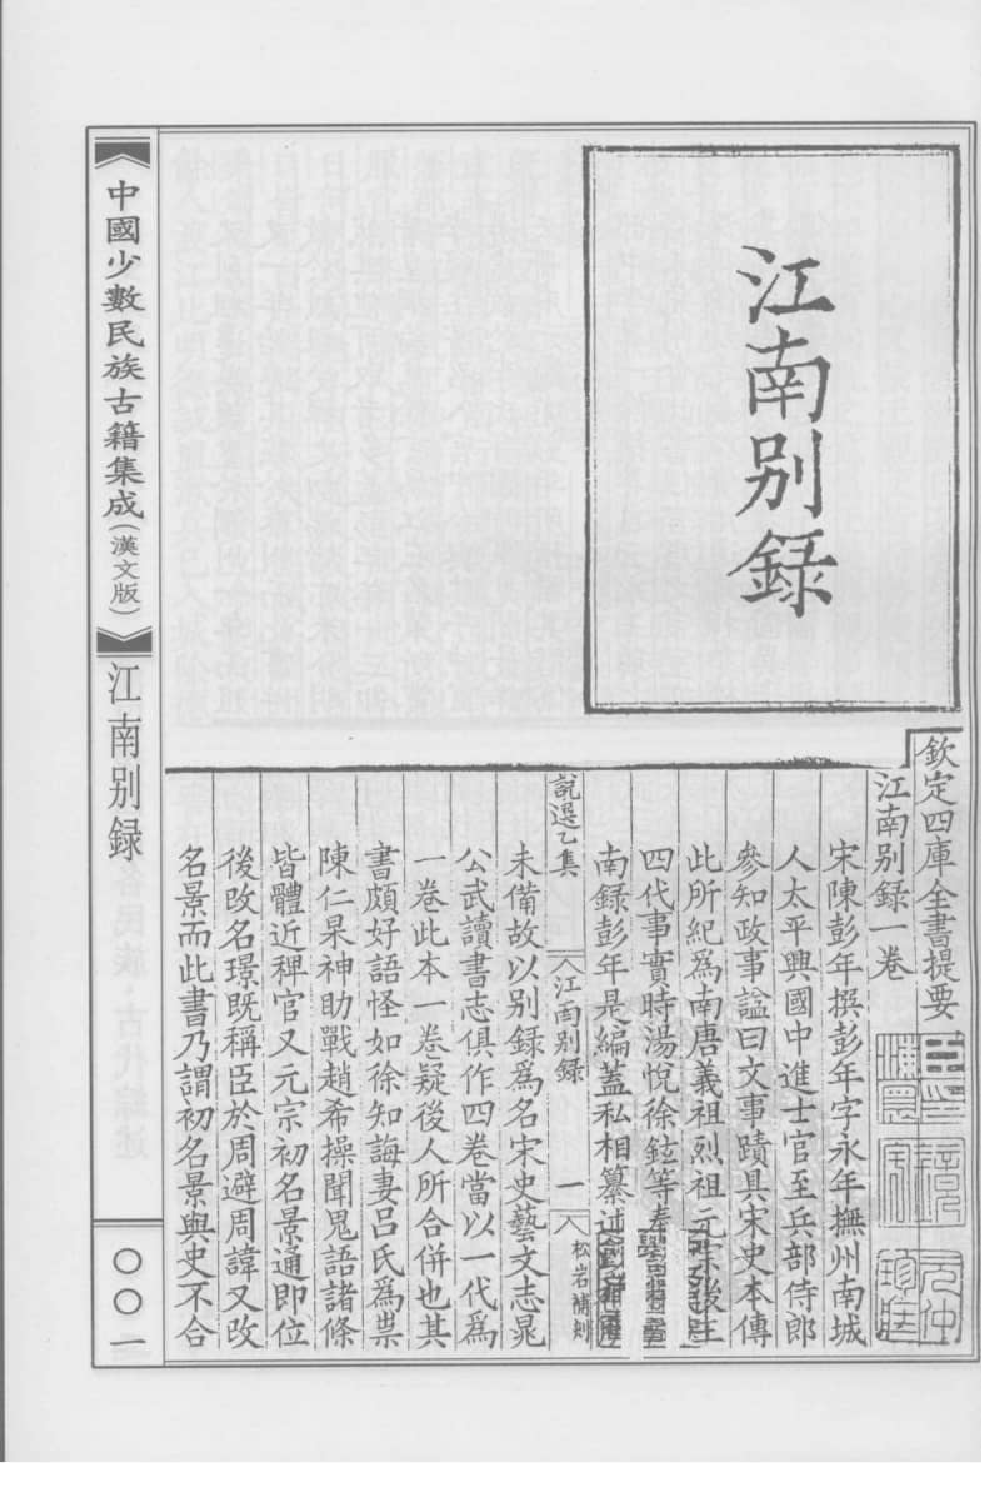 江南别録
欽定四庫全書提要
江南别録一卷
宋陳彭年撰彭年字永年撫州南城
人太平興國中進士官至兵部侍郎
參知政事諡曰文事蹟具宋史本傳
此所紀爲南唐義祖烈祖元宗後主
四代事實時湯悅徐鉉等奉
南録彭年是編蓋私相纂述
說選乙集
江南别録
一
松岩補刻
未備故以别録爲名宋史藝文志晁
公武讀書志俱作四卷當以一代爲
一卷此本一卷疑後人所合併也其
書頗好語怪如徐知誨妻呂氏爲祟
陳仁杲神助戰趙希操聞鬼語諸條
皆體近稗官又元宗初名景通即位
後改名璟既稱臣於周避周諱又改
名景而此書乃謂初名景與史不合
中國少數民族古籍集成(漢文版)
江南别録
〇〇一